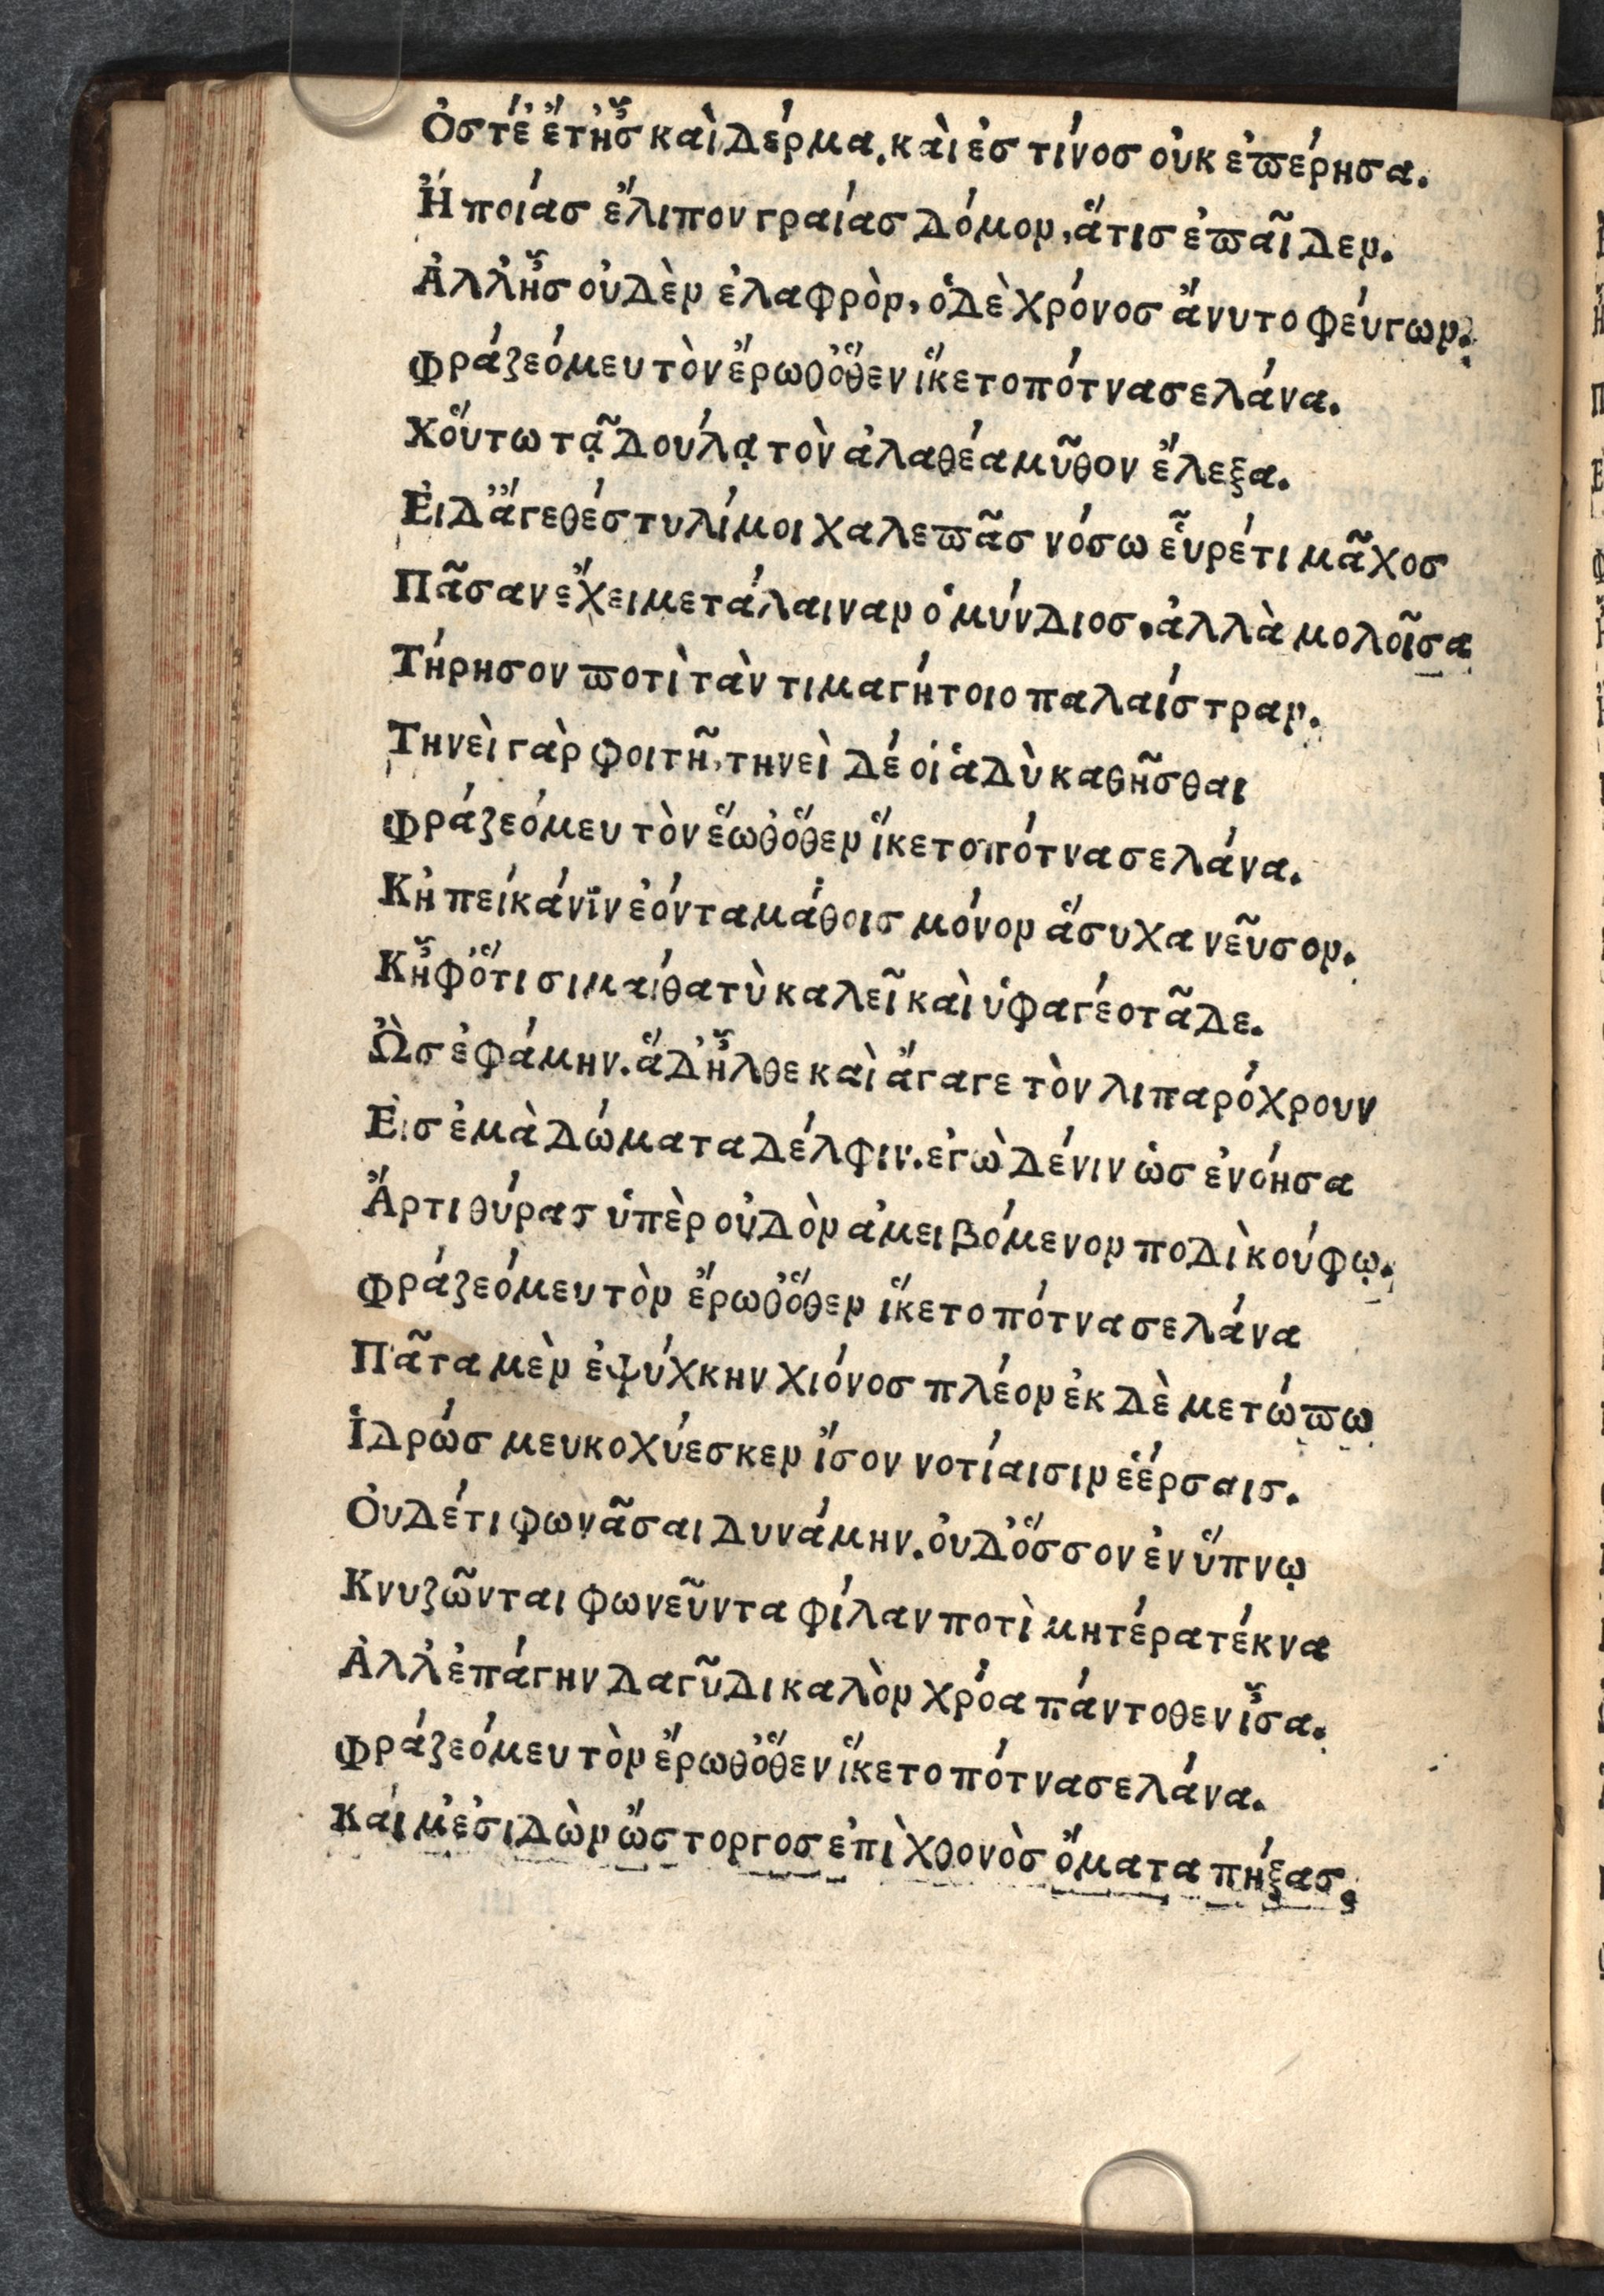 Ὀστέ ἔτ' ἦσ καὶ δέρμα. καὶ ἐσ τίνοσ οὐκ ἐπέρησα.
Ἢ ποίασ ἔλιπον γραίασ δόμον, ἅτισ ἐπᾶιδεν.
Ἀλλ' ἦσ οὐδὲν ἐλαφρὸν, ὁ δὲ χρόνοσ ἄνυτο φεύγων.
Φράζεό μευ τὸν ἔρωθ' ὅθεν ἵκετο πότνα σελάνα.
Χ' οὕτω τᾷ δούλᾳ τὸν ἀλαθέα μῦθον ἔλεξα.
Ἐι δ' ἄγε θέστυλί μοι χαλεπᾶσ νόσω εὗρέ τι μᾶχοσ
Πᾶσαν ἔχει με τάλαιναν ὁ μύνδιοσ, ἀλλὰ μολοῖσα
Τήρησον ποτὶ τὰν τιμαγήτοιο παλαίστραν.
Τηνεὶ γὰρ φοιτῆ, τηνεὶ δέ οἱ ἁδὺ καθῆσθαι
Φράζεό μευ τὸν ἔωθ' ὅθεν ἵκετο πότνα σελάνα.
Κἠπεί κά νϊν ἐόντα μάθοισ μόνον ἅσυχα νεῦσον.
Κἦφ' ὅτι σιμαίθα τὺ καλεῖ καὶ ὑφαγέο τᾶδε.
Ὣσ ἐφάμην. ἅ δ' ἦλθε καὶ ἄγαγε τὸν λιπαρόχρουν
Εἰσ ἐμὰ δώματα δέλφιν. ἐγὼ δέ νιν ὡσ ἐνόησα
Ἄρτι θύρασ ὑπὲρ οὐδὸν ἀμειβόμενον ποδὶ κούφῳ.
Φράζεό μευ τὸν ἔρωθ' ὅθεν ἵκετο πότνα σελάνα
Πᾶτα μὲν ἐψύχκην χιόνοσ πλέον ἐκ δὲ μετώπω
Ἱδρώσ μευ κοχύεσκεν ἴσον νοτίαισιν ἐέρσαισ.
Ὀυδέ τι φωνᾶσαι δυνάμην. ὀυδ' ὅσσον ἐν ὕπνῳ
Κνυζῶνται φωνεῦντα φίλαν ποτὶ μητέρα τέκνα
Ἀλλ' ἐπάγην δαγῦδι καλὸν χρόα πάντοθεν ἶσα.
Φράζεό μευ τὸν ἔρωθ' ὅθεν ἵκετο πότνα σελάνα.
Καί μ' ἐσιδὼν ὥστοργοσ ἐπὶ χθονὸσ ὄματα πήξασ,